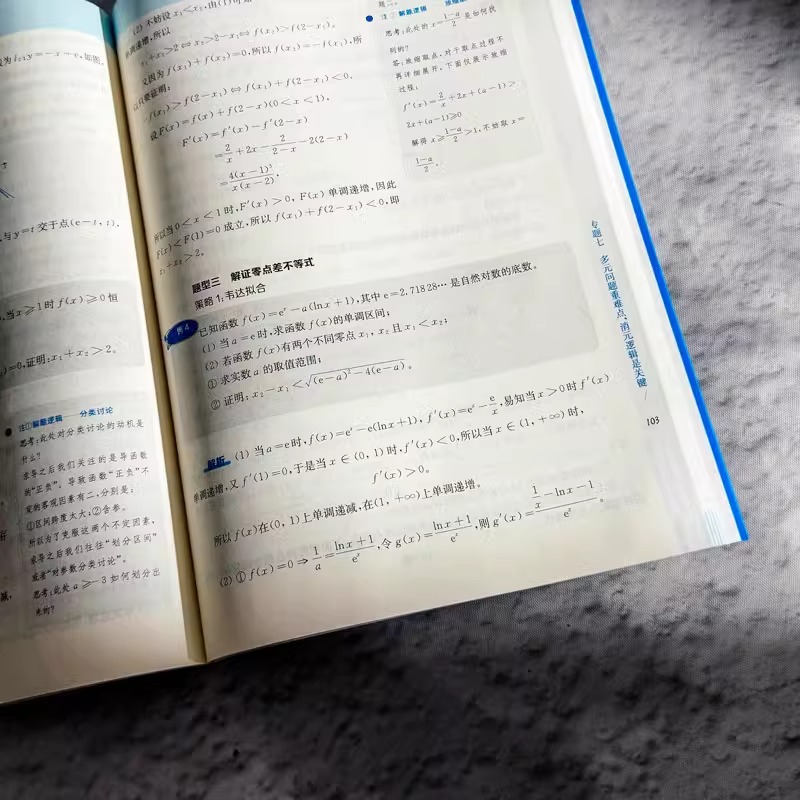 设为 l₂:y=-x+e,如图,
与 y=t 交于点(e-t, t).
当 x≥1 时 f(x)≥0 恒
)=0,证明:x₁+x₂>2。
注①解题逻辑 分类讨论
思考:此处对分类讨论的动机是
什么?
求导之后我们关注的是导函数
的“正负”。导致函数“正负”不
定的客观因素有二,分别是:
①区间跨度太大;②含参。
所以为了克服这两个不定因素,
求导之后我们往往“划分区间”
或者“对参数分类讨论”。
思考:此处 a≥-3 如何划分出
来的?
(2) 不妨设 x₁<x₂,由(1)可知
单调递增,所以
x₁+x₂>2⇔x₂>2-x₁⇔f(x₂)>f(2-x₁)。
又因为 f(x₁)+f(x₂)=0,所以 f(x₂)=-f(x₁),所
以只要证明:
-f(x₁)>f(2-x₁)⇔f(x₁)+f(2-x₁)<0,
设 F(x)=f(x)+f(2-x)(0<x<1),
F′(x)=f′(x)-f′(2-x)
=2/x+2x-2/(2-x)-2(2-x)
=4(x-1)³/(x(x-2)),
所以当 0<x<1 时,F′(x)>0, F(x) 单调递增,因此
F(x)<F(1)=0 成立,所以 f(x₁)+f(2-x₁)<0,即
x₁+x₂>2。
题型三 解证零点差不等式
策略 1:韦达拟合
例 4
已知函数 f(x)=eˣ-a(lnx+1),其中 e=2.718 28… 是自然对数的底数。
(1) 当 a=e 时,求函数 f(x)的单调区间;
(2) 若函数 f(x)有两个不同零点 x₁, x₂ 且 x₁<x₂;
① 求实数 a 的取值范围;
② 证明:x₂-x₁<√((e-a)²-4(e-a))。
解析 (1) 当 a=e 时, f(x)=eˣ-e(lnx+1), f′(x)=eˣ-e/x,易知当 x>0 时 f′(x)
单调递增,又 f′(1)=0,于是当 x∈(0, 1) 时,f′(x)<0,所以当 x∈(1, +∞) 时,
f′(x)>0。
所以 f(x)在(0, 1)上单调递减,在(1, +∞)上单调递增。
(2) ① f(x)=0⇒1/a=(lnx+1)/eˣ,令 g(x)=(lnx+1)/eˣ,则 g′(x)=(1/x-lnx-1)/eˣ。
注② 解题逻辑
思考:此处的 x=(1-a)/2 是如何找
到的?
答:放缩取点,对于取点过程不
再详细展开,下面仅展示放缩
过程:
f′(x)=2/x+2x+(a-1)>
2x+(a-1)≥0
解得 x≥(1-a)/2>1,不妨取 x=
(1-a)/2.
专题七 多元问题重难点,消元逻辑是关键
103